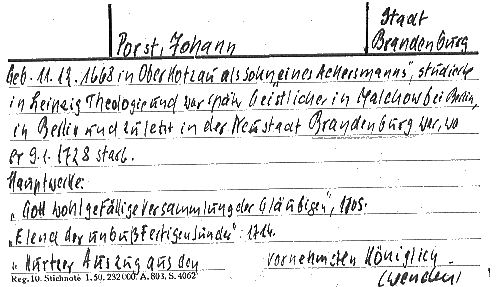 Stadt
Porst, Johann Brandenburg
Geb. 11.12.1668 in Oberkotzau als Sohn „eines Ackersmanns", studierte
in Leipzig Theologie und war später Geistlicher in Malchow bei Berlin,
in Berlin und zuletzt in der Neustadt Brandenburg war, wo
er 9.1.1728 starb.
Hauptwerke:
„Gott wohlgefällige Versammlung der Gläubigen", 1705.
„Elend der unbußfertigen Sünder": 1714.
„Kurtzer Auszug aus den vornehmsten Königlich
Reg. 10. Stichnote 1. 50. 232000. A. 803, S. 4062 (wenden)